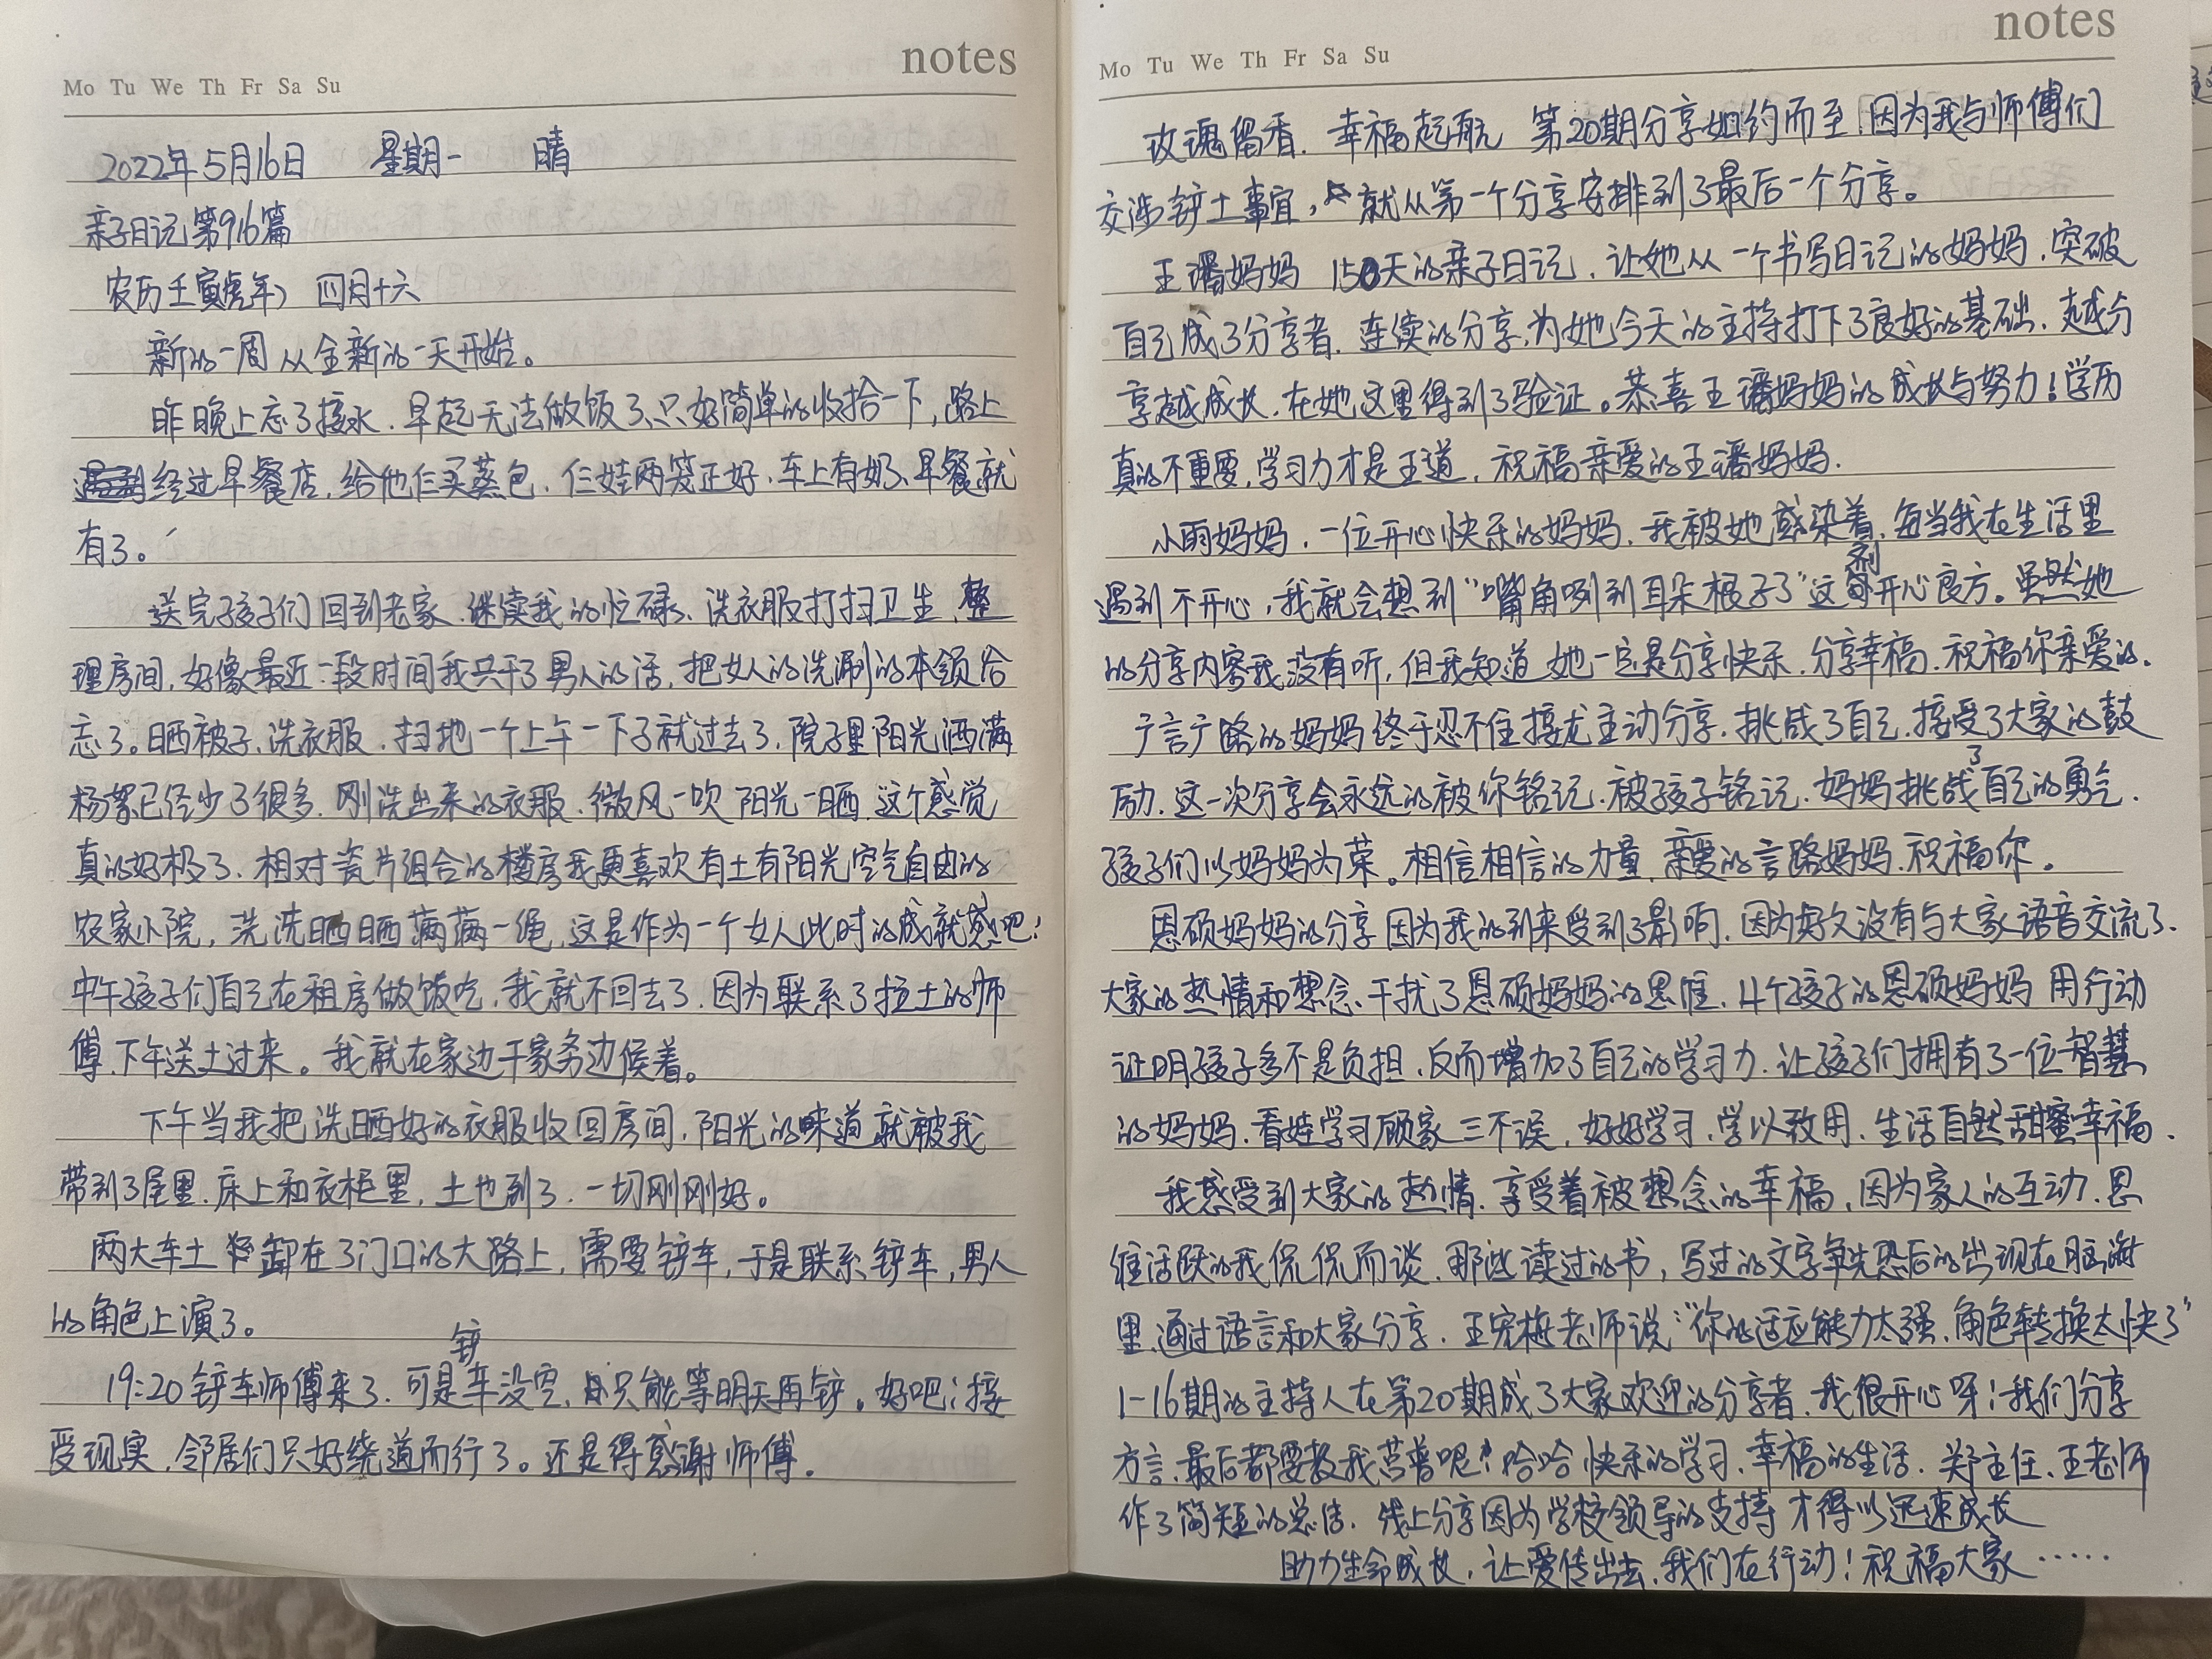 notes
Mo Tu We Th Fr Sa Su
2022年5月16日 星期一 晴
亲子日记第916篇
农历壬寅(虎年) 四月十六
新的一周从全新的一天开始。
昨晚上忘了接水.早起无法做饭了、只好简单的收拾一下,路上
经过早餐店,给他仨买蒸包.仨娃两笼正好.车上有奶、早餐就
有了。
送完孩子们回到老家.继续我的忙碌、洗衣服打扫卫生.整
理房间,好像最近一段时间我共干了男人的活,把女人的洗涮的本领给
忘了。晒被子.洗衣服.扫地一个上午一下子就过去了.院子里阳光洒满
杨絮已经少了很多.刚洗出来的衣服.微风一吹 阳光一晒.这个感觉
真的好极了.相对瓷片组合的楼房我更喜欢有土有阳光空气自由的
农家小院,洗洗晒晒满满一绳.这是作为一个女人此时的成就感吧!
中午孩子们自己在租房做饭吃.我就不回去了.因为联系了拉土的师
傅.下午送土过来。我就在家边干家务边候着。
下午当我把洗晒好的衣服收回房间.阳光的味道就被我
带到了屋里.床上和衣柜里,土也到了.一切刚刚好。
两大车土卸在了门口的大路上,需要铲车,于是联系铲车,男人
的角色上演了。
19:20铲车师傅来了.可是铲车没空,只能等明天再铲。好吧!接
受现实.邻居们只好绕道而行了。还是得感谢师傅.
notes
Mo Tu We Th Fr Sa Su
玫瑰留香.幸福起航 第20期分享如约而至.因为我与师傅们
交涉铲土事宜,就从第一个分享安排到了最后一个分享。
王潘妈妈 150天的亲子日记.让她从一个书写日记的妈妈.突破
自己成了分享者.连续的分享.为她今天的主持打下了良好的基础.越分
享越成长.在她这里得到了验证。恭喜王潘妈妈的成长与努力!学历
真的不重要,学习力才是王道.祝福亲爱的王潘妈妈.
小雨妈妈.一位开心快乐的妈妈.我被她感染着.每当我在生活里
遇到不开心,我就会想到“嘴角咧到耳朵根子了”这剂开心良方。虽然她
的分享内容我没有听,但我知道她一定是分享快乐.分享幸福.祝福你亲爱的.
广言广路的妈妈终于忍不住接龙主动分享.挑战了自己.接受了大家的鼓
励.这一次分享会永远的被你铭记.被孩子铭记.妈妈挑战了自己的勇气.
孩子们以妈妈为荣。相信相信的力量.亲爱的言路妈妈.祝福你。
恩硕妈妈的分享因为我的到来受到了影响.因为好久没有与大家语音交流了.
大家的热情和想念.干扰了恩硕妈妈的思维.4个孩子的恩硕妈妈 用行动
证明孩子多不是负担.反而增加了自己的学习力.让孩子们拥有了一位智慧
的妈妈.看娃学习顾家三不误.好好学习.学以致用.生活自然甜蜜幸福.
我感受到大家的热情.享受着被想念的幸福.因为家人的互动.思
维活跃的我侃侃而谈.那些读过的书,写过的文字争先恐后的出现在脑海
里.通过语言和大家分享.王宪梅老师说“你的适应能力太强.角色转换太快了”
1-16期的主持人在第20期成了大家欢迎的分享者.我很开心呀!我们分享
方言.最后都要教我苦普呢!哈哈 快乐的学习.幸福的生活.关主任、王老师
作了简短的总结.线上分享因为学校领导的支持才得以迅速成长
助力生命成长.让爱传出去.我们在行动!祝福大家……